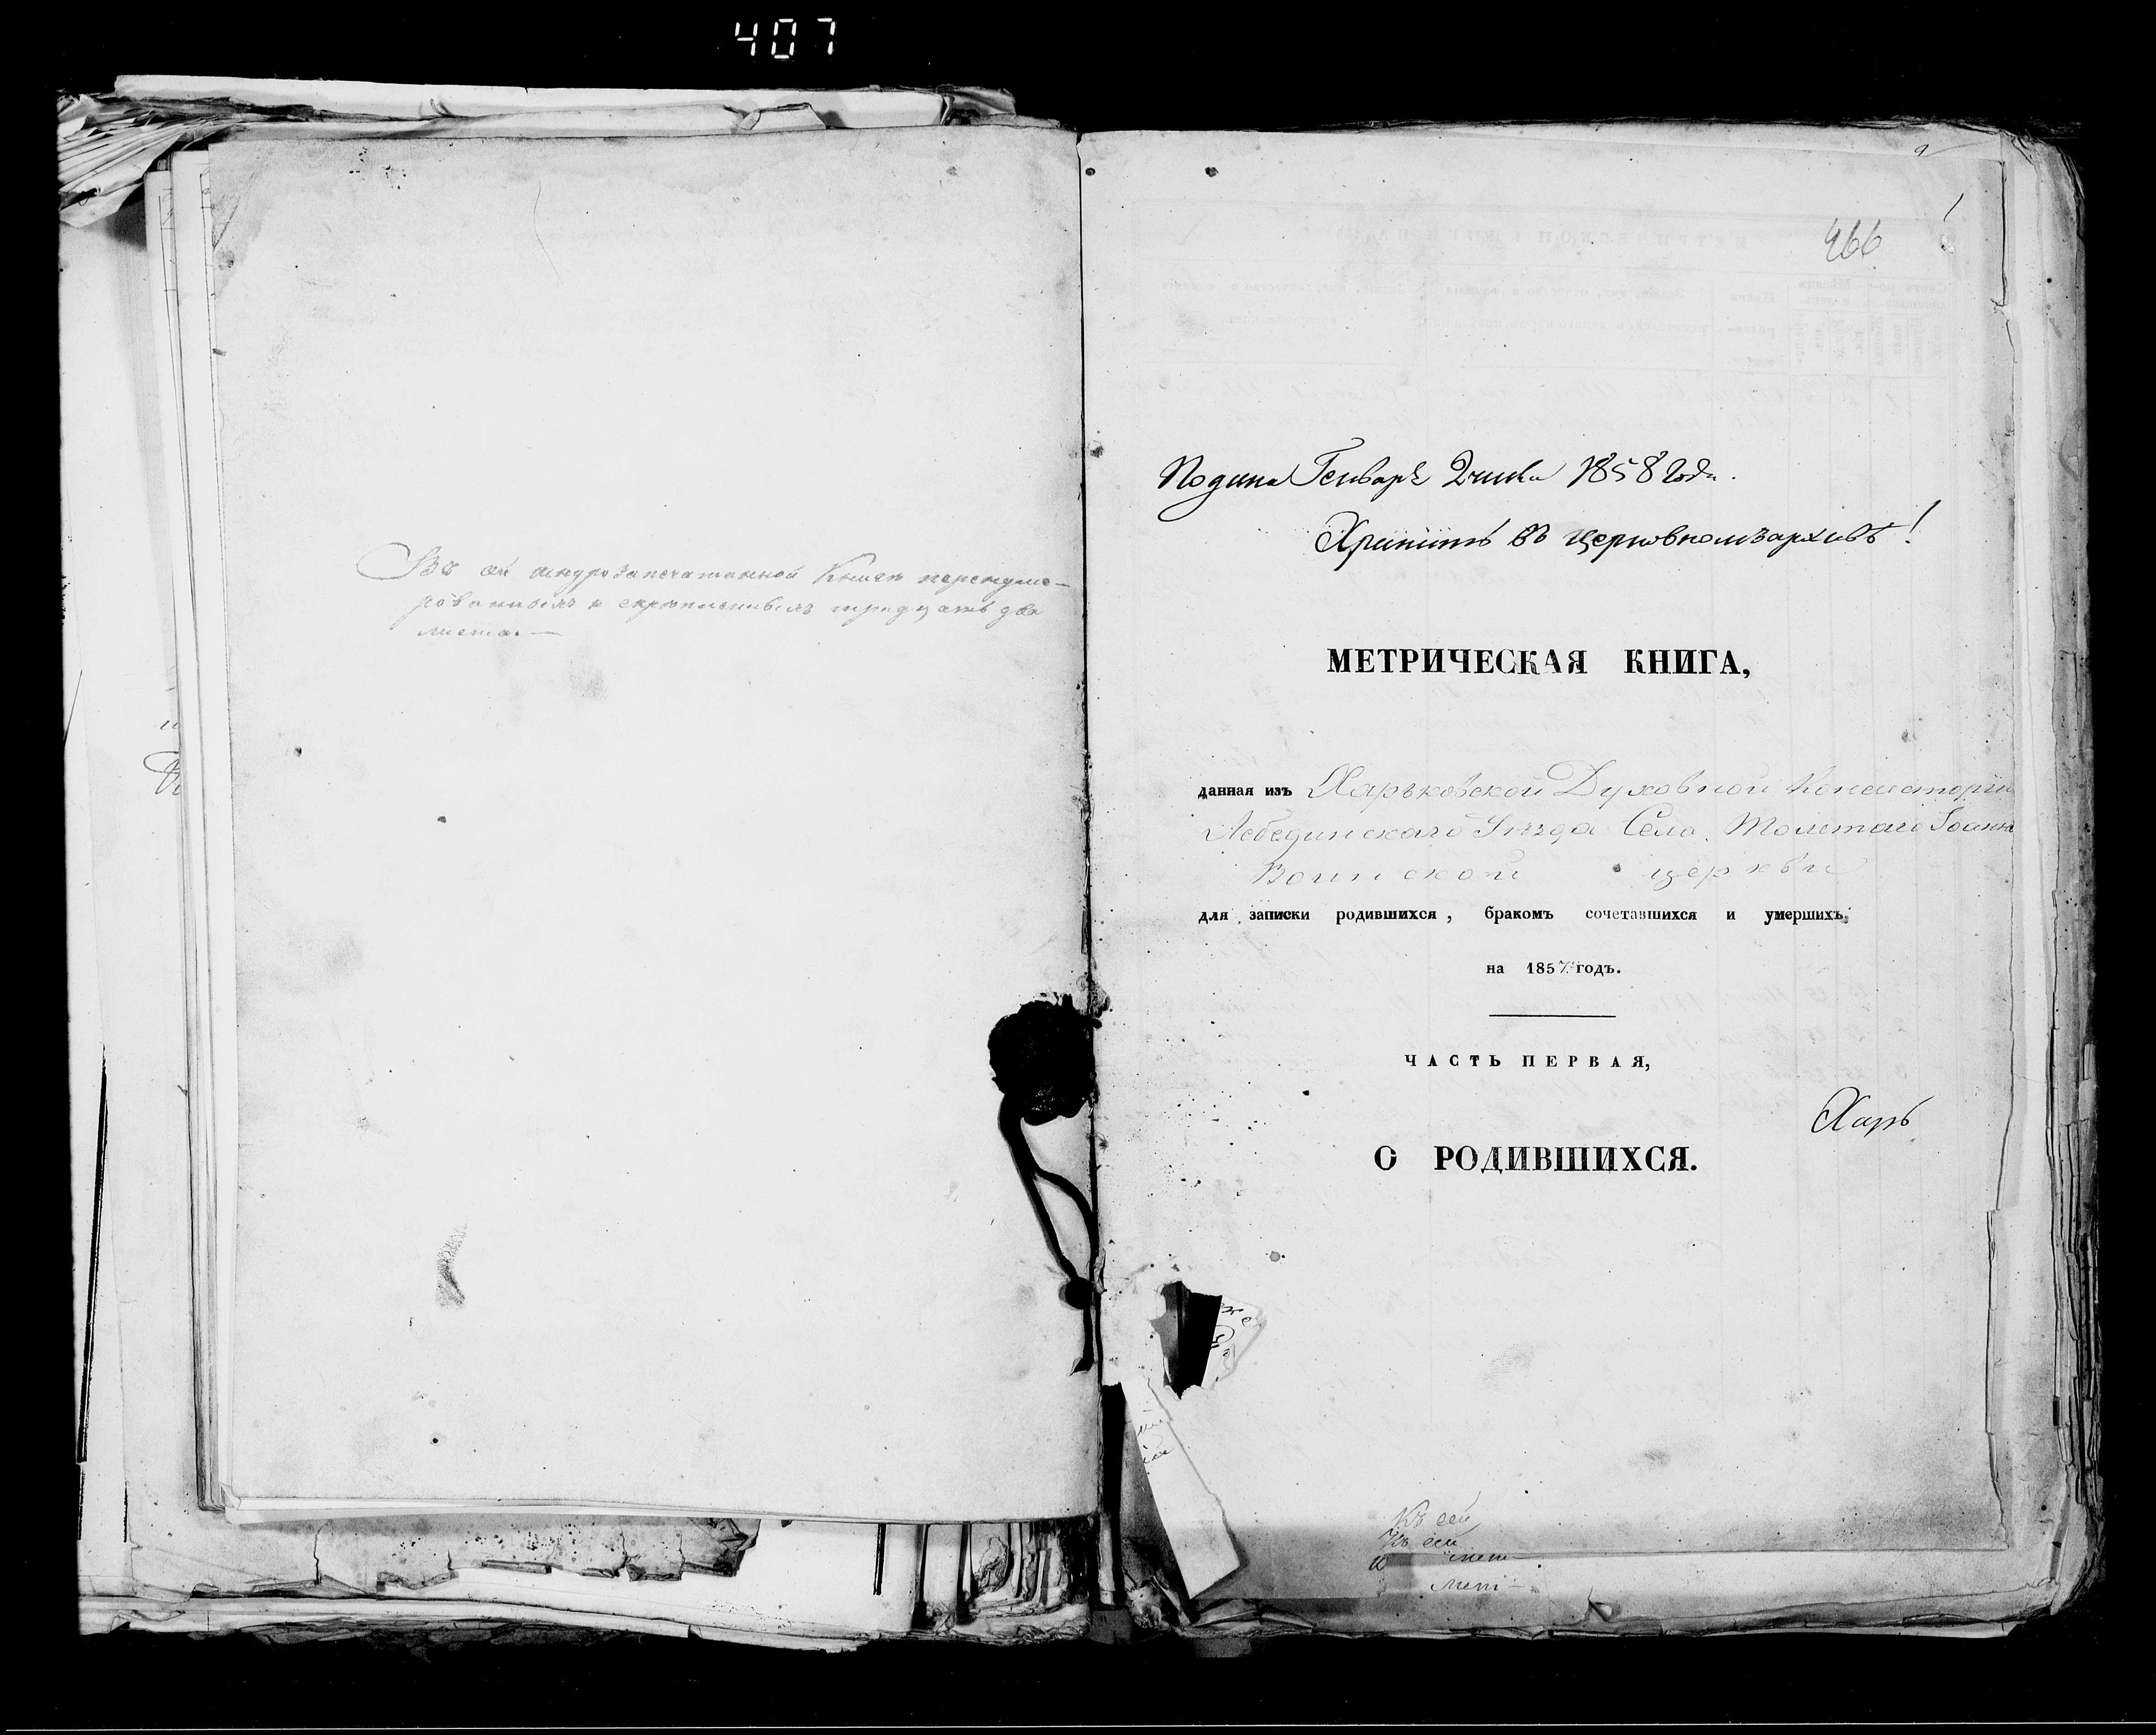 407
Въ сей шнурозапечатанной Книгѣ перенуме-
рованныхъ и скрѣпленныхъ тридцать два
листа.—
466
Подана Генваря 2 числа 1858 года.
Хранить въ церковномъ архивѣ!
МЕТРИЧЕСКАЯ КНИГА,
данная изъ Харьковской Духовной Консисторіи
Лебединскаго Уѣзда Села Толстаго Іоанно
Воинской церкви
для записки родившихся, бракомъ сочетавшихся и умершихъ,
на 1857 годъ.
ЧАСТЬ ПЕРВАЯ,
Харь
О РОДИВШИХСЯ.
Къ сей
Къ сей
мет—
мет—